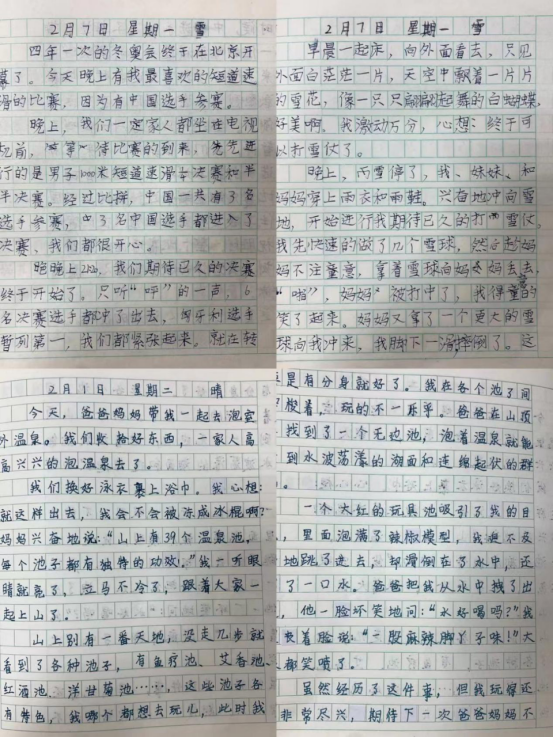 2月7日 星期一 雪
四年一次的冬奥会终于在北京开
幕了。今天晚上有我最喜欢的短道速
滑的比赛，因为有中国选手参赛。
晚上，我们一家人都坐在电视
机前，等待比赛的到来，先进
行的是男子1000米短道速滑决赛和半
决赛。经过比拼，中国一共有3名
选手参赛，3名中国选手都进入了
决赛、我们都很开心。
晚上，我们期待已久的决赛
终于开始了。只听“呯”的一声，6
名决赛选手都冲了出去，匈牙利选手
暂列第一，我们都紧张起来。就在转
2月7日 星期一 雪
早晨一起床，向外面看去，只见
外面白茫茫一片，天空中飘着一片片
的雪花，像一只只翩翩起舞的白蝴蝶，
好美啊。我激动万分，心想：终于可
以打雪仗了。
晚上，雨雪停了，我、妹妹、和
妈妈穿上雨衣和雨鞋。兴奋地冲向雪
地，开始进行我期待已久的打雪仗，
我先快速的做了几个雪球，然后趁妈
妈不注意，拿着雪球向妈妈去，
“啪”，妈妈被打中了，我得意的
笑了起来。妈妈又拿了一个更大的雪
球向我冲来，我脚下一滑，摔倒了。这
2月1日 星期二 晴
今天，爸爸妈妈带我一起去泡室
外温泉。我们收拾好东西，一家人高
高兴兴的泡温泉去了。
我们换好泳衣裹上浴巾。我心想：
就这样出去，我会不会被冻成冰棍啊？
妈妈兴奋地说：“山上有39个温泉池，
每个池子都有独特的功效。”我一听眼
睛就亮了，立马不冷了，跟着大家一
起上山了。
山上别有一番天地，没走几步就
看到了各种池子，有鱼疗池、艾香池、
红酒池、洋甘菊池……，这些池子各
有特色，我哪个都想去玩儿，此时我
是有分身就好了。我在各个池子间
梭着，玩的不亦乐乎。爸爸在山顶
找到了一个无边池，泡着温泉就能
到水波荡漾的湖面和连绵起伏的群
。
一个大红的玩具池吸引了我的目
，里面泡满了辣椒模型，我迫不及
地跳了进去，却滑倒在了水中，还
了一口水。爸爸把我从水中拽了出
，他一脸坏笑地问：“水好喝吗？”我
着脸说：“一股麻辣脚丫子味！”大
都笑喷了。
虽然经历了这件事，但我玩得还
非常尽兴，期待下一次爸爸妈妈不